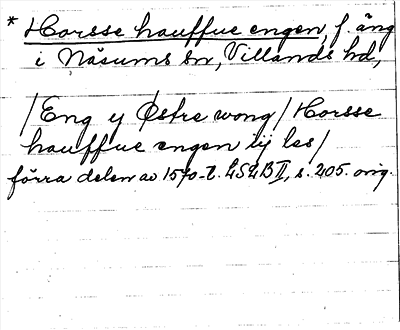 * Horsse hauffue engen, f. äng
i Näsums sn, Villands hd,
/Eng y Østre wong/ Horsse
hauffue engen ij les/
förra delen av 1570-t. LSLB II, s. 205. orig.